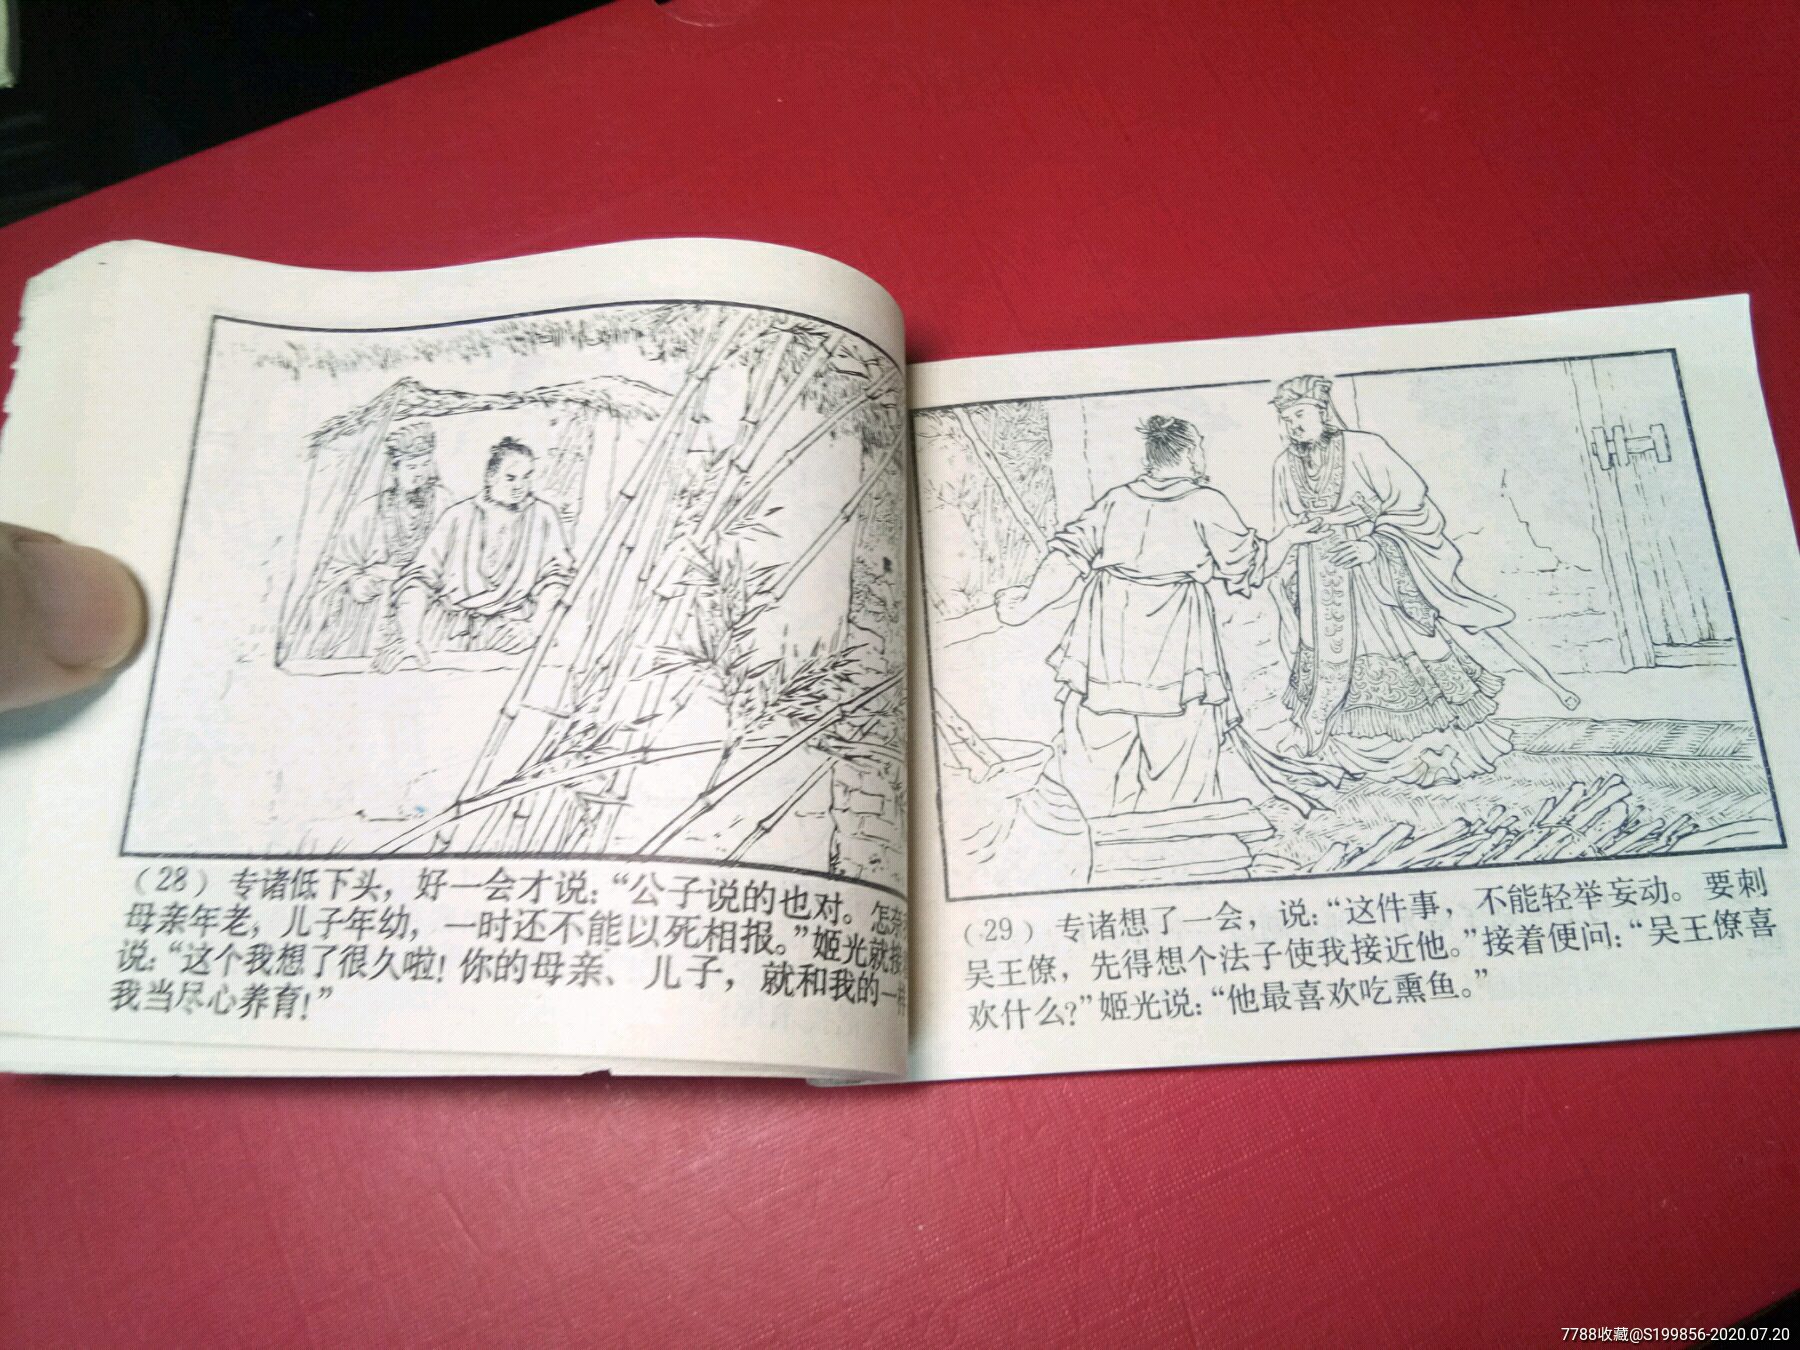 （28）专诸低下头，好一会才说：“公子说的也对。怎奈
母亲年老，儿子年幼，一时还不能以死相报。”姬光就接
说：“这个我想了很久啦！你的母亲、儿子，就和我的一样
我当尽心养育！”
（29）专诸想了一会，说：“这件事，不能轻举妄动。要刺
吴王僚，先得想个法子使我接近他。”接着便问：“吴王僚喜
欢什么？”姬光说：“他最喜欢吃熏鱼。”
7788收藏@S199856-2020.07.20